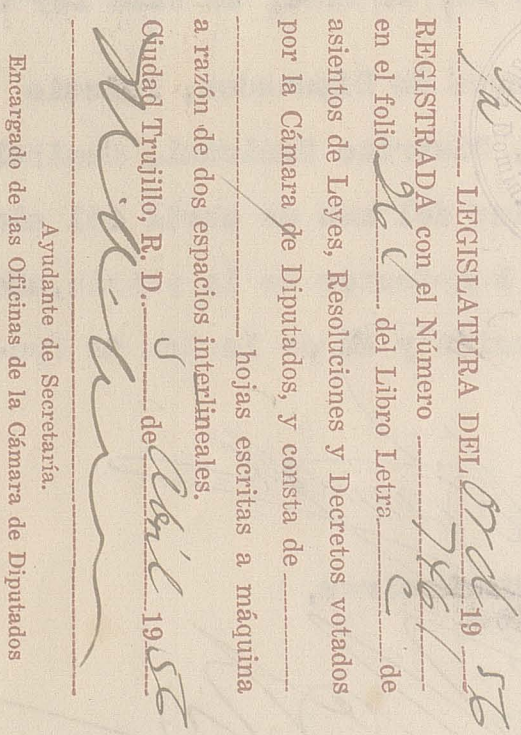 1a LEGISLATURA DEL Ord 1956
REGISTRADA con el Número 7461
en el folio del Libro Letra C de
asientos de Leyes, Resoluciones y Decretos votados
por la Cámara de Diputados, y consta de
hojas escritas a máquina
a razón de dos espacios interlineales.
Ciudad Trujillo, R. D., 5 de Abril 1956
Ayudante de Secretaría.
Encargado de las Oficinas de la Cámara de Diputados